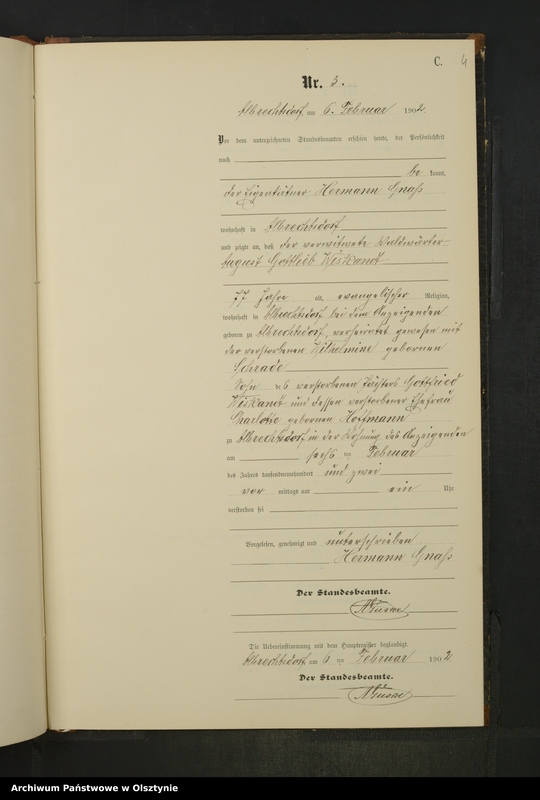 C. 4
Nr. 3.
Albrechtsdorf am 6. Februar 1902.
Vor dem unterzeichneten Standesbeamten erschien heute, der Persönlichkeit
nach
be kannt,
der Eigentümer Hermann Gnaß
wohnhaft in Albrechtsdorf
und zeigte an, daß der verwitwete Waldwärter
August Gottlieb Wiskandt
77 Jahre alt, evangelischer Religion,
wohnhaft in Albrechtsdorf bei dem Anzeigenden
geboren zu Albrechtsdorf, verheiratet gewesen mit
der verstorbenen Wilhelmine geborenen
Schrade
Sohn des verstorbenen Gottfried
Wiskandt und dessen verstorbener Ehefrau
Charlotte geborenen Hoffmann
zu Albrechtsdorf in der Wohnung des Anzeigenden
am sechs ten Februar
des Jahres tausendneunhundert und zwei
vor mittags um ein Uhr
verstorben sei
Vorgelesen, genehmigt und unterschrieben
Hermann Gnaß
Der Standesbeamte.
Die Uebereinstimmung mit dem Hauptregister beglaubigt.
Albrechtsdorf am 6 ten Februar 1902
Der Standesbeamte.
Archiwum Państwowe w Olsztynie